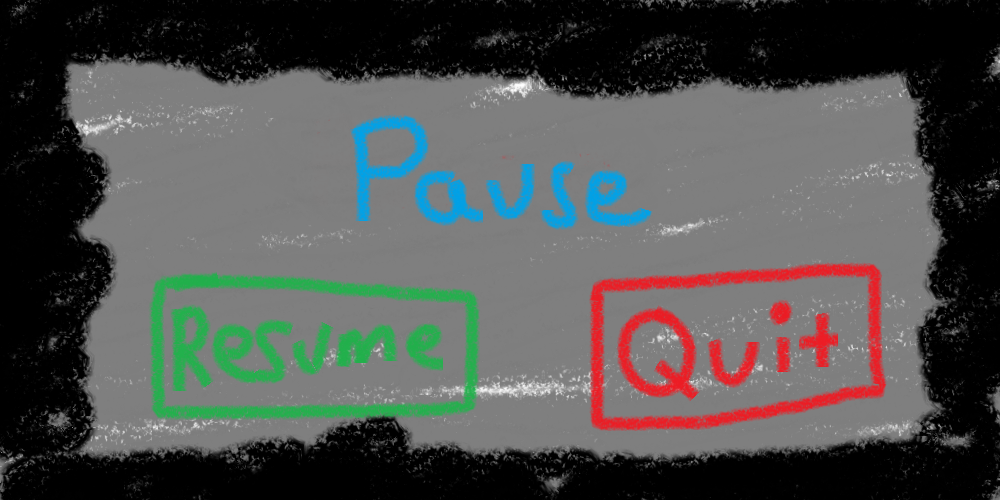 Pause
Resume Quit